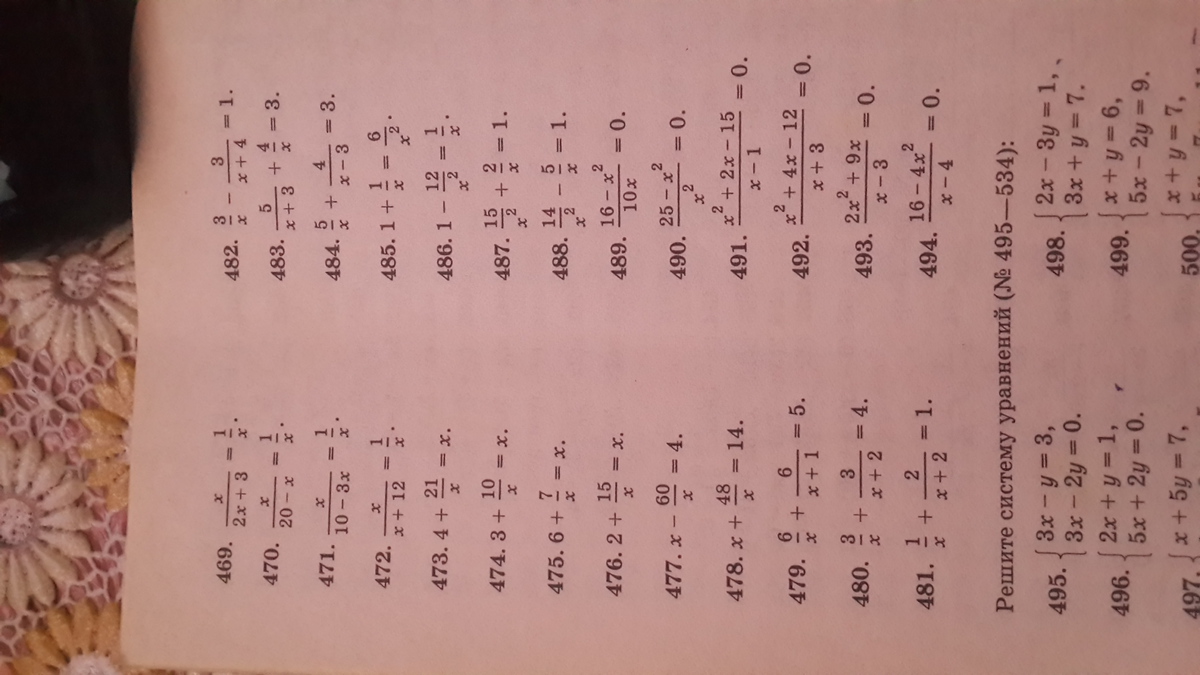 469. x/(2x + 3) = 1/x.
470. x/(20 − x) = 1/x.
471. x/(10 − 3x) = 1/x.
472. x/(x + 12) = 1/x.
473. 4 + 21/x = x.
474. 3 + 10/x = x.
475. 6 + 7/x = x.
476. 2 + 15/x = x.
477. x − 60/x = 4.
478. x + 48/x = 14.
479. 6/x + 6/(x + 1) = 5.
480. 3/x + 3/(x + 2) = 4.
481. 1/x + 2/(x + 2) = 1.
482. 3/x − 3/(x + 4) = 1.
483. 5/(x + 3) + 4/x = 3.
484. 5/x + 4/(x − 3) = 3.
485. 1 + 1/x = 6/x².
486. 1 − 12/x² = 1/x.
487. 15/x² + 2/x = 1.
488. 14/x² − 5/x = 1.
489. (16 − x²)/10x = 0.
490. (25 − x²)/x² = 0.
491. (x² + 2x − 15)/(x − 1) = 0.
492. (x² + 4x − 12)/(x + 3) = 0.
493. (2x² + 9x)/(x − 3) = 0.
494. (16 − 4x²)/(x − 4) = 0.
Решите систему уравнений (№ 495—534):
495. { 3x − y = 3,
3x − 2y = 0.
496. { 2x + y = 1,
5x + 2y = 0.
497. { x + 5y = 7,
498. { 2x − 3y = 1,
3x + y = 7.
499. { x + y = 6,
5x − 2y = 9.
500. { x + y = 7,